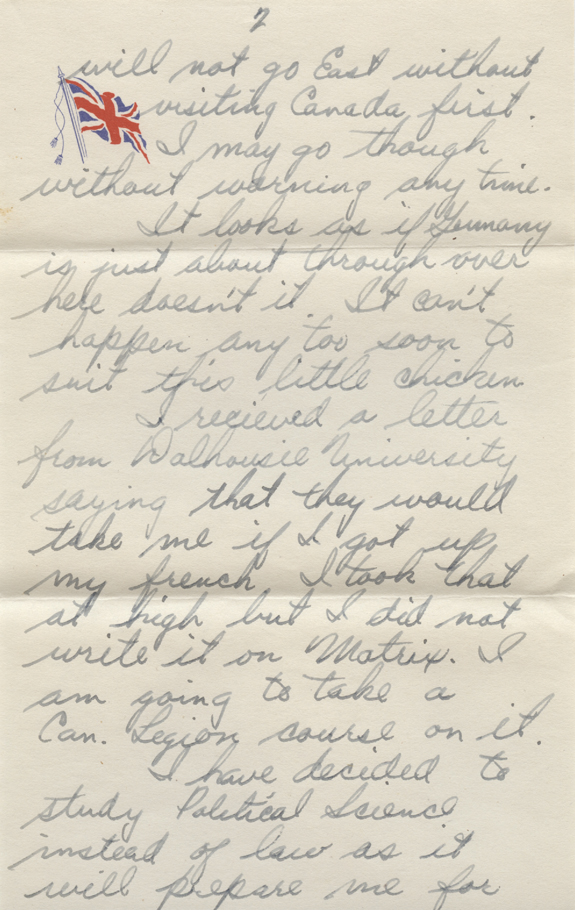 2
will not go East without
visiting Canada first.
I may go though
without warning any time.
It looks as if Germany
is just about through over
here doesn't it. It can't
happen any too soon to
suit this little chicken
I recieved a letter
from Dalhousie University
saying that they would
take me if I got up
my french. I took that
at high but I did not
write it on Matrix. I
am going to take a
Can. Legion course on it.
I have decided to
study Political Science
instead of law as it
will prepare me for